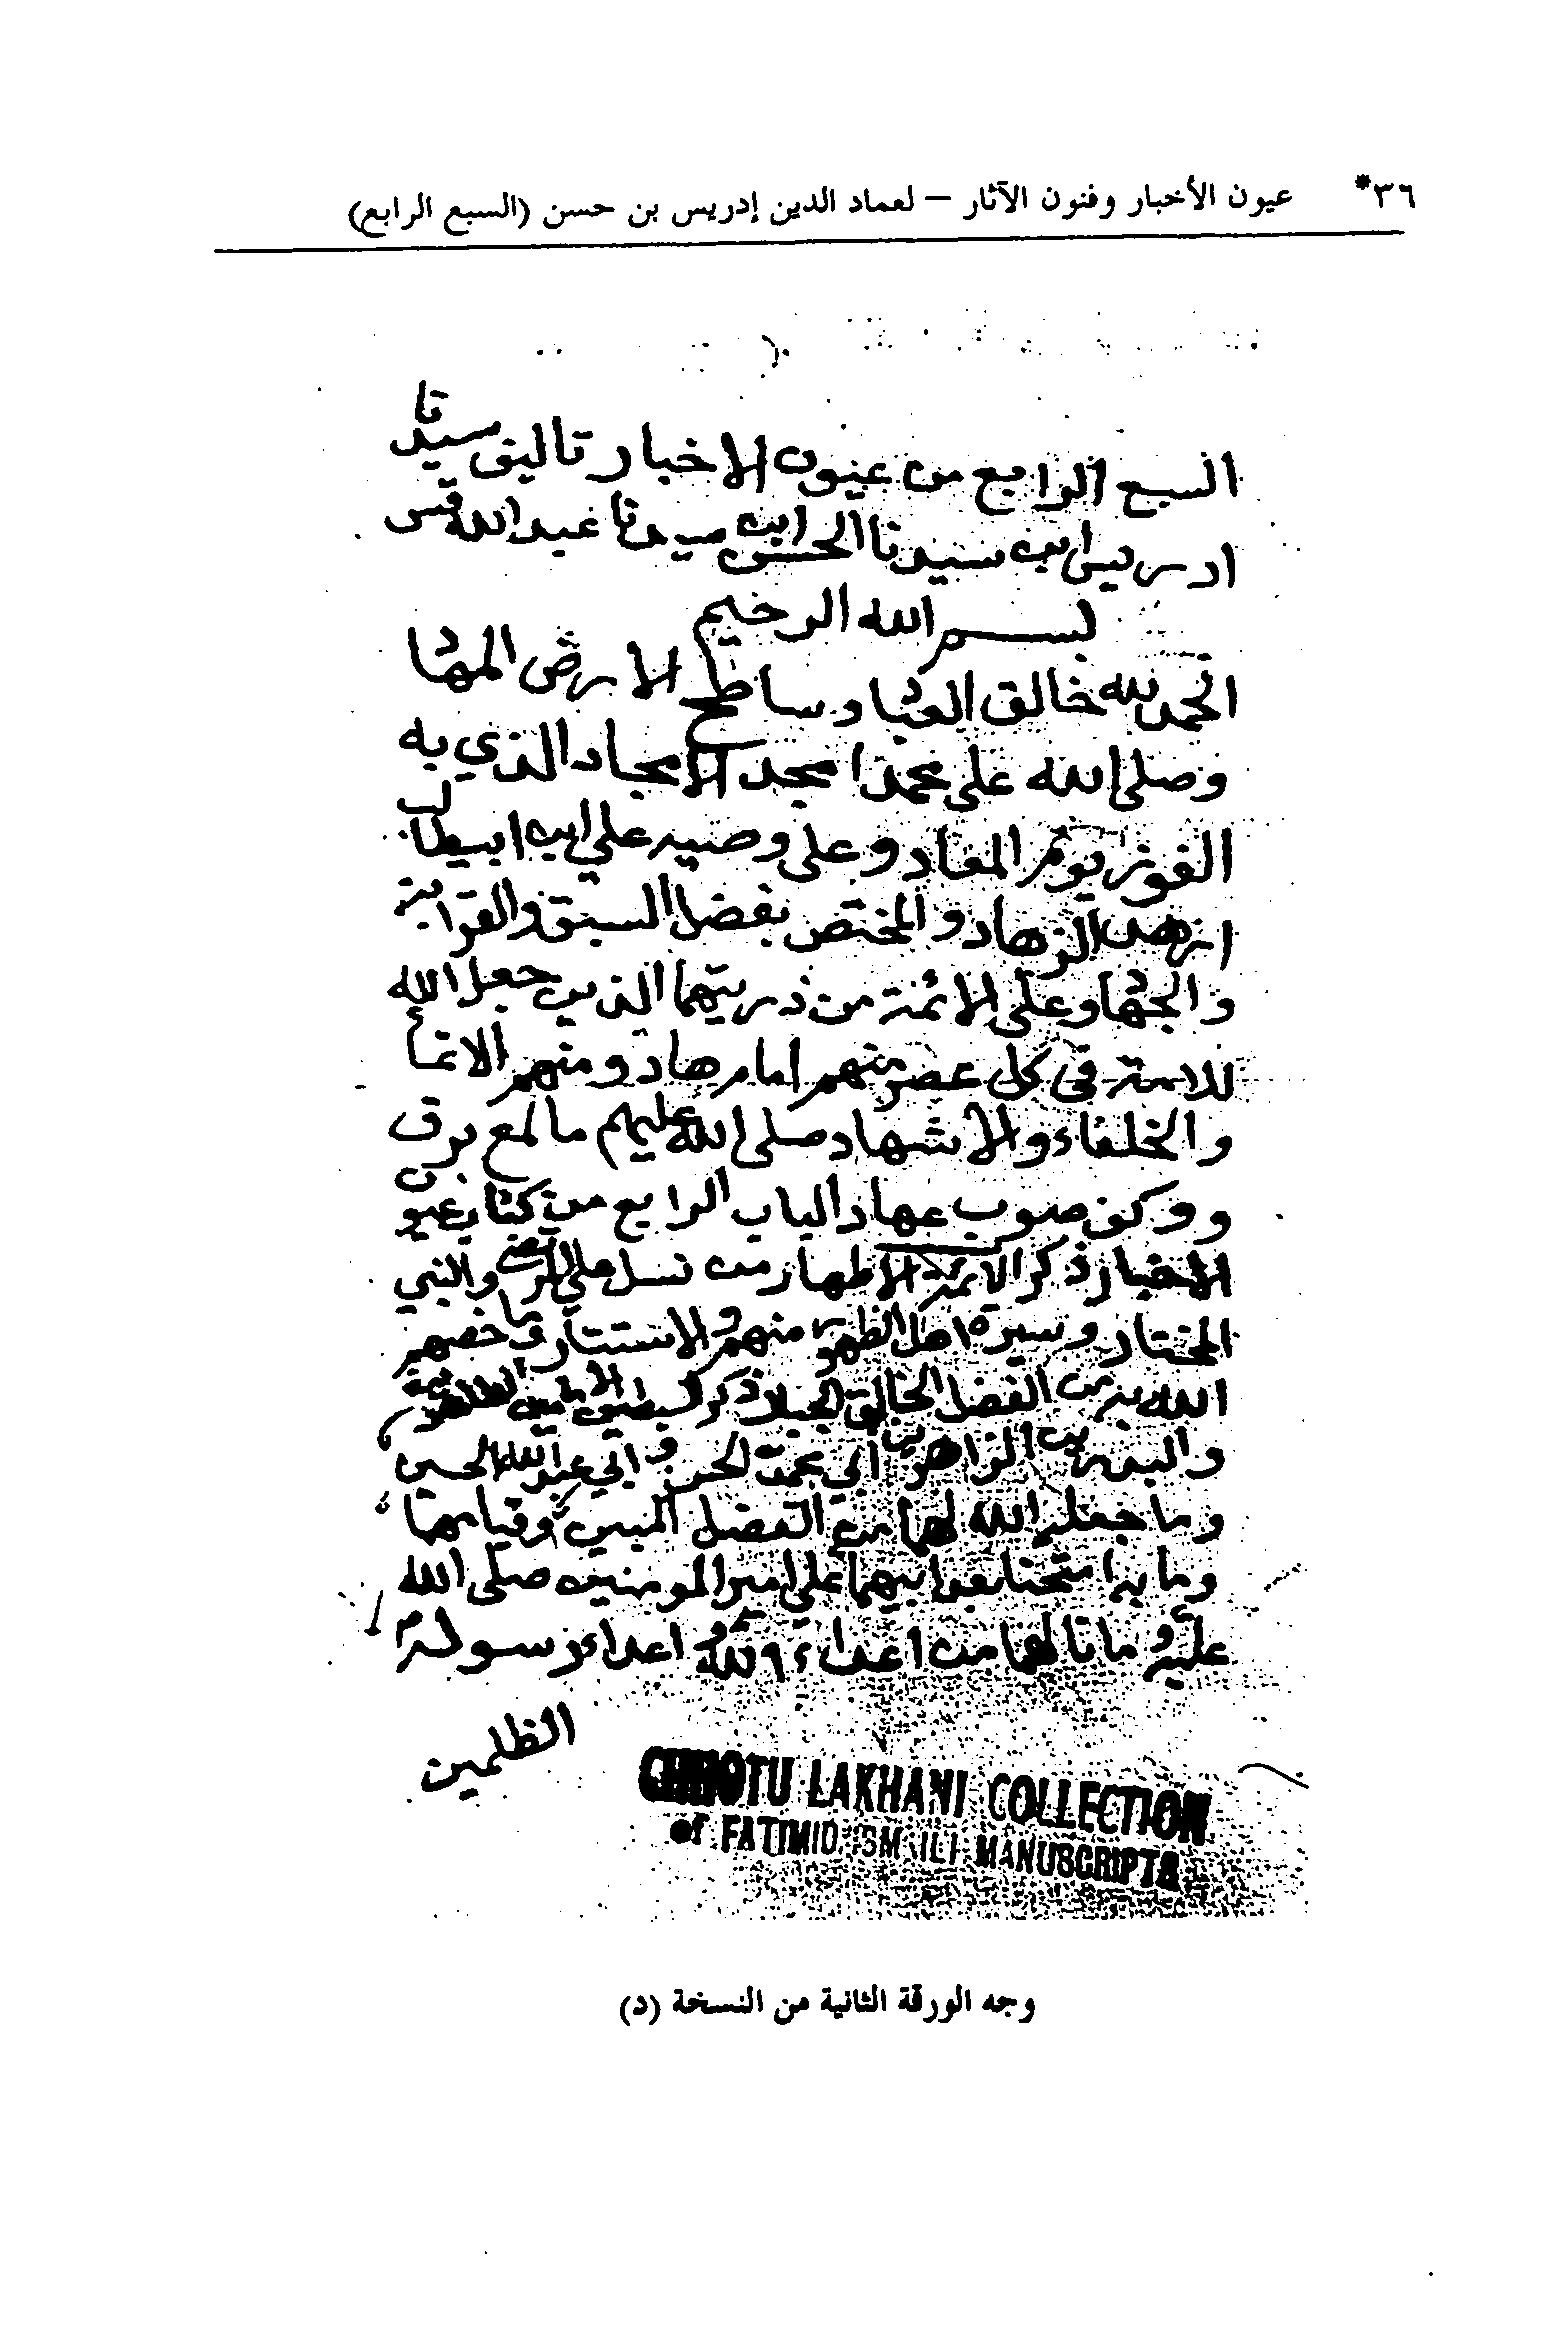 ٣٦* عيون الأخبار وفنون الآثار – لعماد الدين إدريس بن حسن (السبع الرابع)
السبع الرابع من عيون الاخبار تاليف سيدنا
ادريس ابن سيدنا الحسن ابن سيدنا عبدالله قس
بسم الله الرحيم
الحمد لله خالق العباد وساطح الارض المهاد
وصلى الله على محمد امجد الامجاد الذي به
الفوز يوم المعاد وعلى وصيه علي ابن ابيطالب
ازهد الزهاد والمختص بفضل السبق والقرابة
والجهاد وعلى الائمة من ذريتهما الذين جعل الله
للامة في كل عصر منهم امام هاد ومنهم الاتماء
والخلفاء والاشهاد صلى الله عليهم ما لمع برق
ووكف صوب عهاد الباب الرابع من كتاب عيون
الاخبار ذكر الائمة الاطهار من نسل علي والنبي
المختار وسيرة اهل الظهور منهم والاستتار وما خصهم
الله به من الفضل الخالق الجبار ذكر السبطين الامامين الطاهرين
والبدرين الزاهرين ابي محمد الحسن وابي عبد الله الحسين
وما جعل الله لهما من الفضل المبين وقيامهما
وما به امتحنا بعد ابيهما علي امير المومنين صلى الله
عليه وما نالهما من اعداء الله واعداء رسوله
الظلمين
CHHOTU LAKHANI COLLECTION
of FATIMID ISMAILI MANUSCRIPTS
وجه الورقة الثانية من النسخة (د)